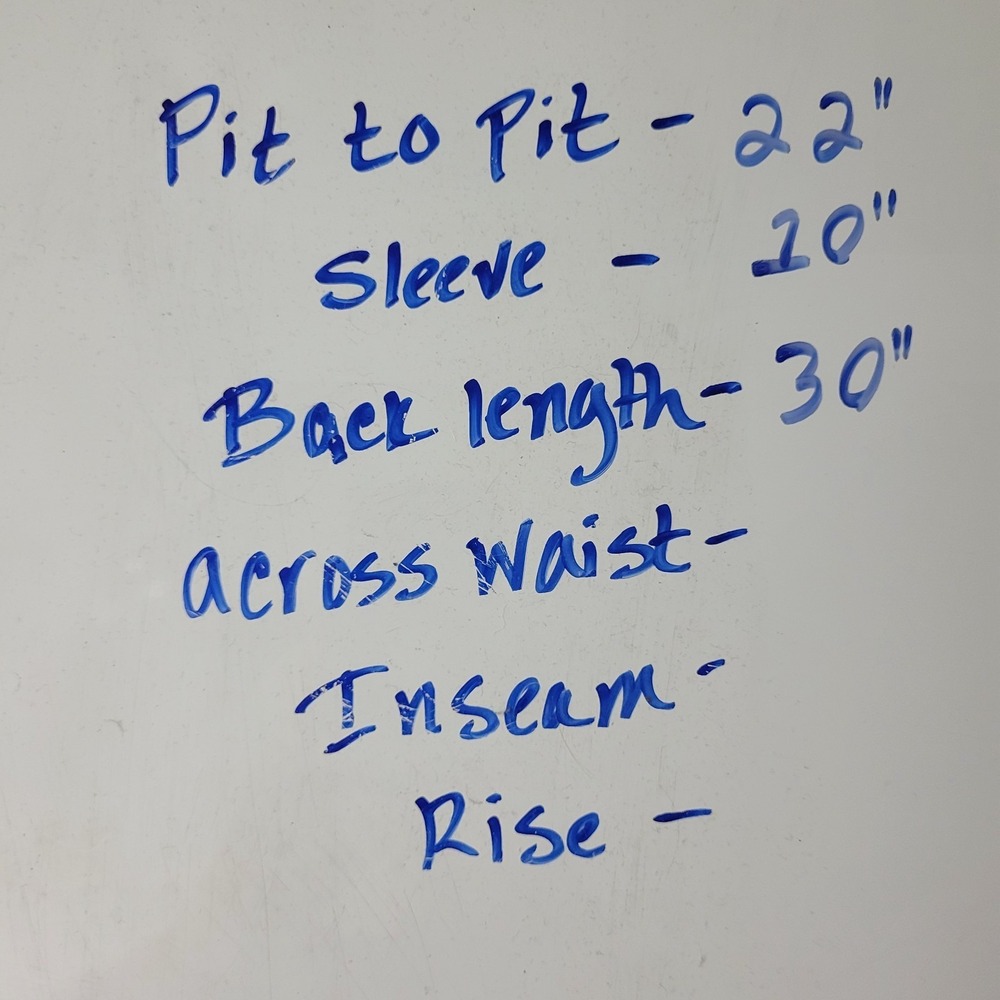 Pit to Pit - 22"
Sleeve - 10"
Back length - 30"
across Waist -
Inseam -
Rise -